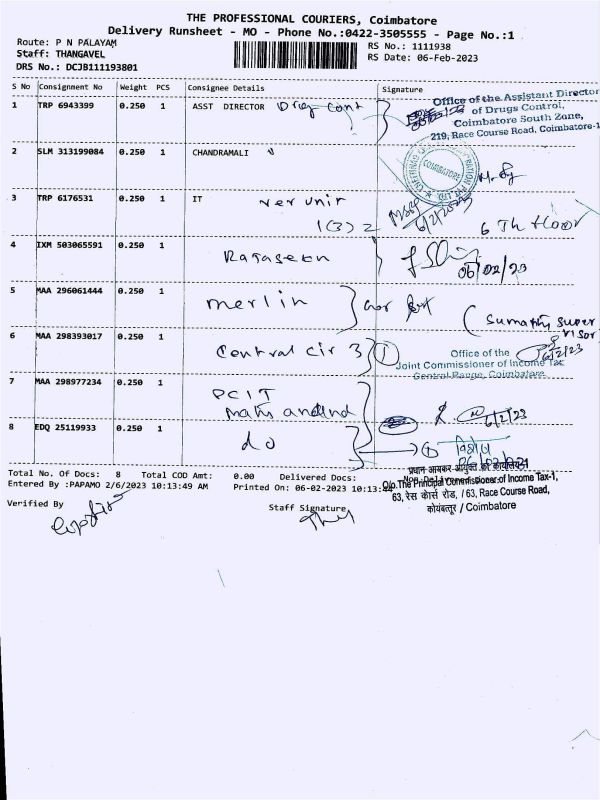 THE PROFESSIONAL COURIERS, Coimbatore
Delivery Runsheet - MO - Phone No.:0422-3505555 - Page No.:1
Route: P N PALAYAM
Staff: THANGAVEL
DRS No.: DCJB111193801
RS No.: 1111938
RS Date: 06-Feb-2023
S No Consignment No Weight PCS Consignee Details Signature
1 TRP 6943399 0.250 1 ASST DIRECTOR Drug cont
Office of the Assistant Director
of Drugs Control,
Coimbatore South Zone,
219, Race Course Road, Coimbatore-1
2 SLM 313199084 0.250 1 CHANDRAMALI
COIMBATORE
3 TRP 6176531 0.250 1 IT
6/2/2023
1(3) 2 6 Th floor
4 IXM 503065591 0.250 1
06/02/23
5 MAA 296061444 0.250 1 merlin
(Sumathy super
visor
6 MAA 298393017 0.250 1 Central cir 3 1
6/2/23
Office of the
Joint Commissioner of Income Tax
Central Range, Coimbatore
7 MAA 298977234 0.250 1 PCIT
6/2/23
8 EDQ 25119933 0.250 1 do
Total No. Of Docs: 8 Total COD Amt: 0.00 Delivered Docs: Non-Delivered Docs:
Entered By :PAPAMO 2/6/2023 10:13:49 AM Printed On: 06-02-2023 10:13:44
प्रधान आयकर आयुक्त का कार्यालय
O/o.The Principal Commissioner of Income Tax-1,
63, रेस कोर्स रोड, / 63, Race Course Road,
कोयंबत्तूर / Coimbatore
Verified By Staff Signature